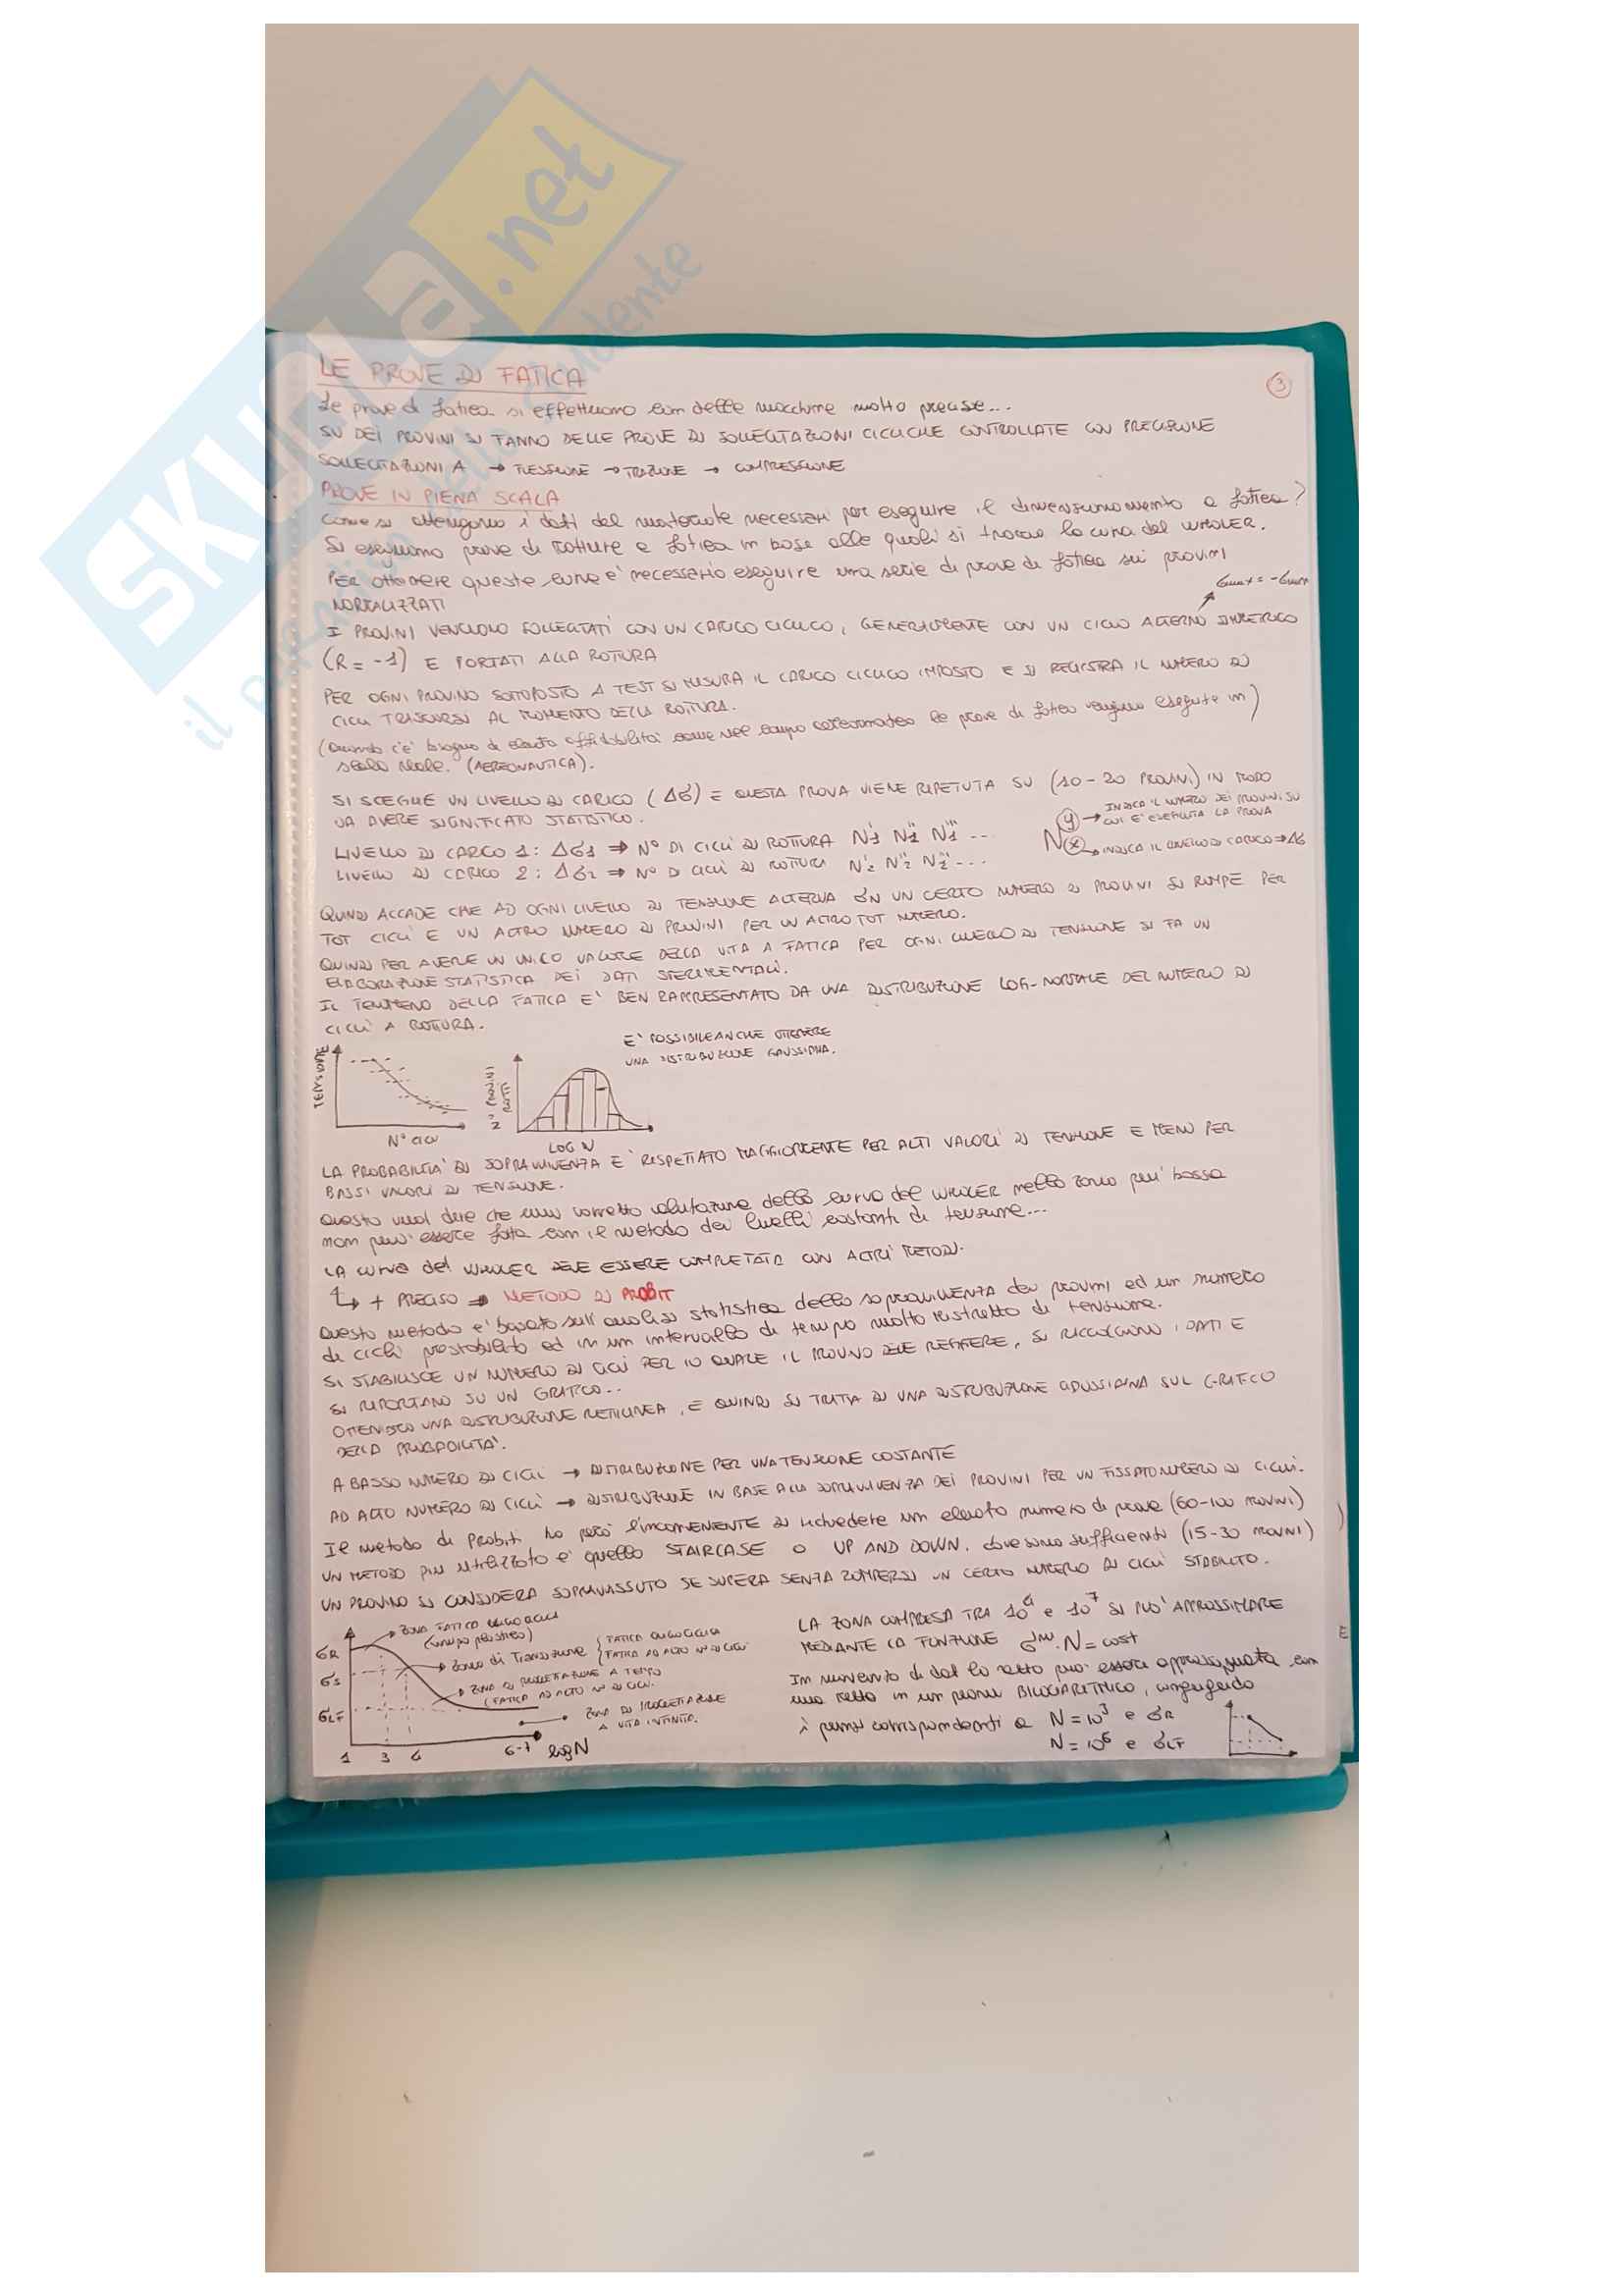 SKUOLA.net
LE PROVE DI FATICA
3
Le prove di fatica si effettuano con delle macchine molto precise...
SU DEI PROVINI SI FANNO DELLE PROVE DI SOLLECITAZIONI CICLICHE CONTROLLATE CON PRECISIONE
SOLLECITAZIONI A → FLESSIONE → TRAZIONE → COMPRESSIONE
PROVE IN PIENA SCALA
Come si ottengono i dati del materiale necessari per eseguire il dimensionamento a fatica?
Si eseguono prove di rotture a fatica in base alle quali si traccia la curva del WHOLER.
PER ottenere queste curve è necessario eseguire una serie di prove di fatica sui provini
NORMALIZZATI
σmax = -σmin
I PROVINI VENGONO SOLLECITATI CON UN CARICO CICLICO, GENERALMENTE CON UN CICLO ALTERNO SIMMETRICO
(R = -1) E PORTATI ALLA ROTTURA
PER OGNI PROVINO SOTTOPOSTO A TEST SI MISURA IL CARICO CICLICO IMPOSTO E SI REGISTRA IL NUMERO DI
CICLI TRASCORSI AL MOMENTO DELLA ROTTURA.
(Quando c'è bisogno di elevata affidabilità come nel campo le prove di fatica vengono eseguite in)
scala reale. (AEREONAUTICA).
SI SCEGLIE UN LIVELLO DI CARICO (Δσ) E QUESTA PROVA VIENE RIPETUTA SU (10-20 PROVINI) IN MODO
DA AVERE SIGNIFICATO STATISTICO.
N y → INDICA IL NUMERO DEI PROVINI SU
CUI E' ESEGUITA LA PROVA
x → INDICA IL LIVELLO DI CARICO ⇒ Δσ
LIVELLO DI CARICO 1: Δσ1 ⇒ N° DI CICLI DI ROTTURA N'1 N''1 N'''1 ...
LIVELLO DI CARICO 2: Δσ2 ⇒ N° DI CICLI DI ROTTURA N'2 N''2 N'''2 ...
QUINDI ACCADE CHE AD OGNI LIVELLO DI TENSIONE ALTERNA σN UN CERTO NUMERO DI PROVINI SI ROMPE PER
TOT CICLI E UN ALTRO NUMERO DI PROVINI PER UN ALTRO TOT NUMERO.
QUINDI PER AVERE UN UNICO VALORE DELLA VITA A FATICA PER OGNI LIVELLO DI TENSIONE SI FA UN
ELABORAZIONE STATISTICA DEI DATI SPERIMENTALI.
IL FENOMENO DELLA FATICA E' BEN RAPPRESENTATO DA UNA DISTRIBUZIONE LOG-NORMALE DEL NUMERO DI
CICLI A ROTTURA.
E' POSSIBILE ANCHE OTTENERE
UNA DISTRIBUZIONE GAUSSIANA.
TENSIONE
N° CICLI
N° PROVINI
ROTTI
LOG N
LA PROBABILITA' DI SOPRAVVIVENZA E' RISPETTATO MAGGIORMENTE PER ALTI VALORI DI TENSIONE E MENO PER
BASSI VALORI DI TENSIONE.
Questo vuol dire che una corretta valutazione della curva del WHOLER nella zona più bassa
non può essere fatta con il metodo dei livelli costanti di tensione...
LA curva del WHOLER DEVE ESSERE COMPLETATA CON ALTRI METODI.
↳ + PRECISO ⇒ METODO DI PROBIT
Questo metodo è basato sull'analisi statistica della sopravvivenza dei provini ed un numero
di cicli prestabilito ed in un intervallo di tempo molto ristretto di tensione.
SI STABILISCE UN NUMERO DI CICLI PER IO QUALE IL PROVINO DEVE RESISTERE, SI RICCOLGONO I DATI E
SI RIPORTANO SU UN GRAFICO...
OTTENIAMO UNA DISTRIBUZIONE RETTILINEA, E QUINDI SI TRATTA DI UNA DISTRIBUZIONE GAUSSIANA SUL GRAFICO
DELLA PROBABILITA'.
A BASSO NUMERO DI CICLI → DISTRIBUZIONE PER UNA TENSIONE COSTANTE
AD ALTO NUMERO DI CICLI → DISTRIBUZIONE IN BASE ALLA SOPRAVVIVENZA DEI PROVINI PER UN FISSATO NUMERO DI CICLI.
Il metodo di Probit, ha però l'inconveniente DI richiedere un elevato numero di prove (60-100 PROVINI)
UN METODO più utilizzato è quello STAIRCASE O UP AND DOWN. dove sono sufficienti (15-30 PROVINI)
UN PROVINO SI CONSIDERA SOPRAVVISSUTO SE SUPERA SENZA ROMPERSI UN CERTO NUMERO DI CICLI STABILITO.
ZONA FATICA OLIGOCICLICA
(campo plastico)
Zona di Transizione { FATICA OLIGOCICLICA
FATICA AD ALTO N° DI CICLI
ZONA DI PROGETTAZIONE A TEMPO
(FATICA AD ALTO N° DI CICLI.
ZONA DI PROGETTAZIONE
A VITA INFINITA.
σR
σS
σLF
1 3 4 6-7 log N
LA ZONA COMPRESA TRA 10⁴ e 10⁷ SI PUO' APPROSSIMARE
MEDIANTE LA FUNZIONE σᵐ·N = cost
In mancanza di dati la retta può essere approssimata con
una retta in un piano BILOGARITMICO, congiungendo
i punti corrispondenti a N = 10³ e σR
N = 10⁶ e σLF